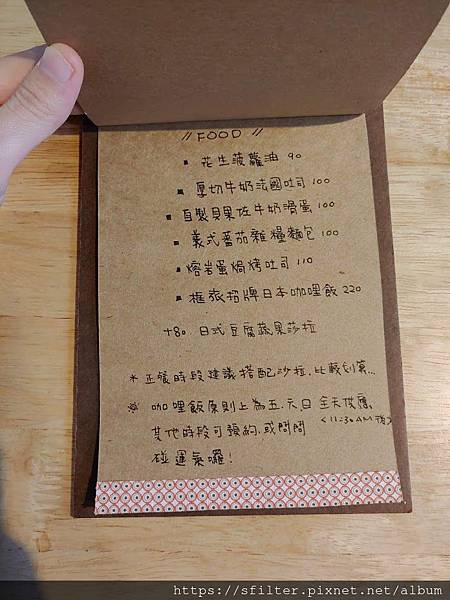 // FOOD //
▪ 花生菠蘿油 90
▪ 厚切牛奶法國吐司 100
▪ 自製貝果佐牛奶滑蛋 100
▪ 義式番茄雜糧麵包 100
▪ 熔岩蛋焗烤吐司 110
▪ 框旅招牌日本咖哩飯 220
+80. 日式豆腐蔬果莎拉
* 正餐時段建議搭配沙拉,比較划算...
※ 咖哩飯原則上為五.六日 全天供應,
<11:30 AM 後>
其他時段可預約,或問問
碰運氣囉!
https://sfilter.pixnet.net/album